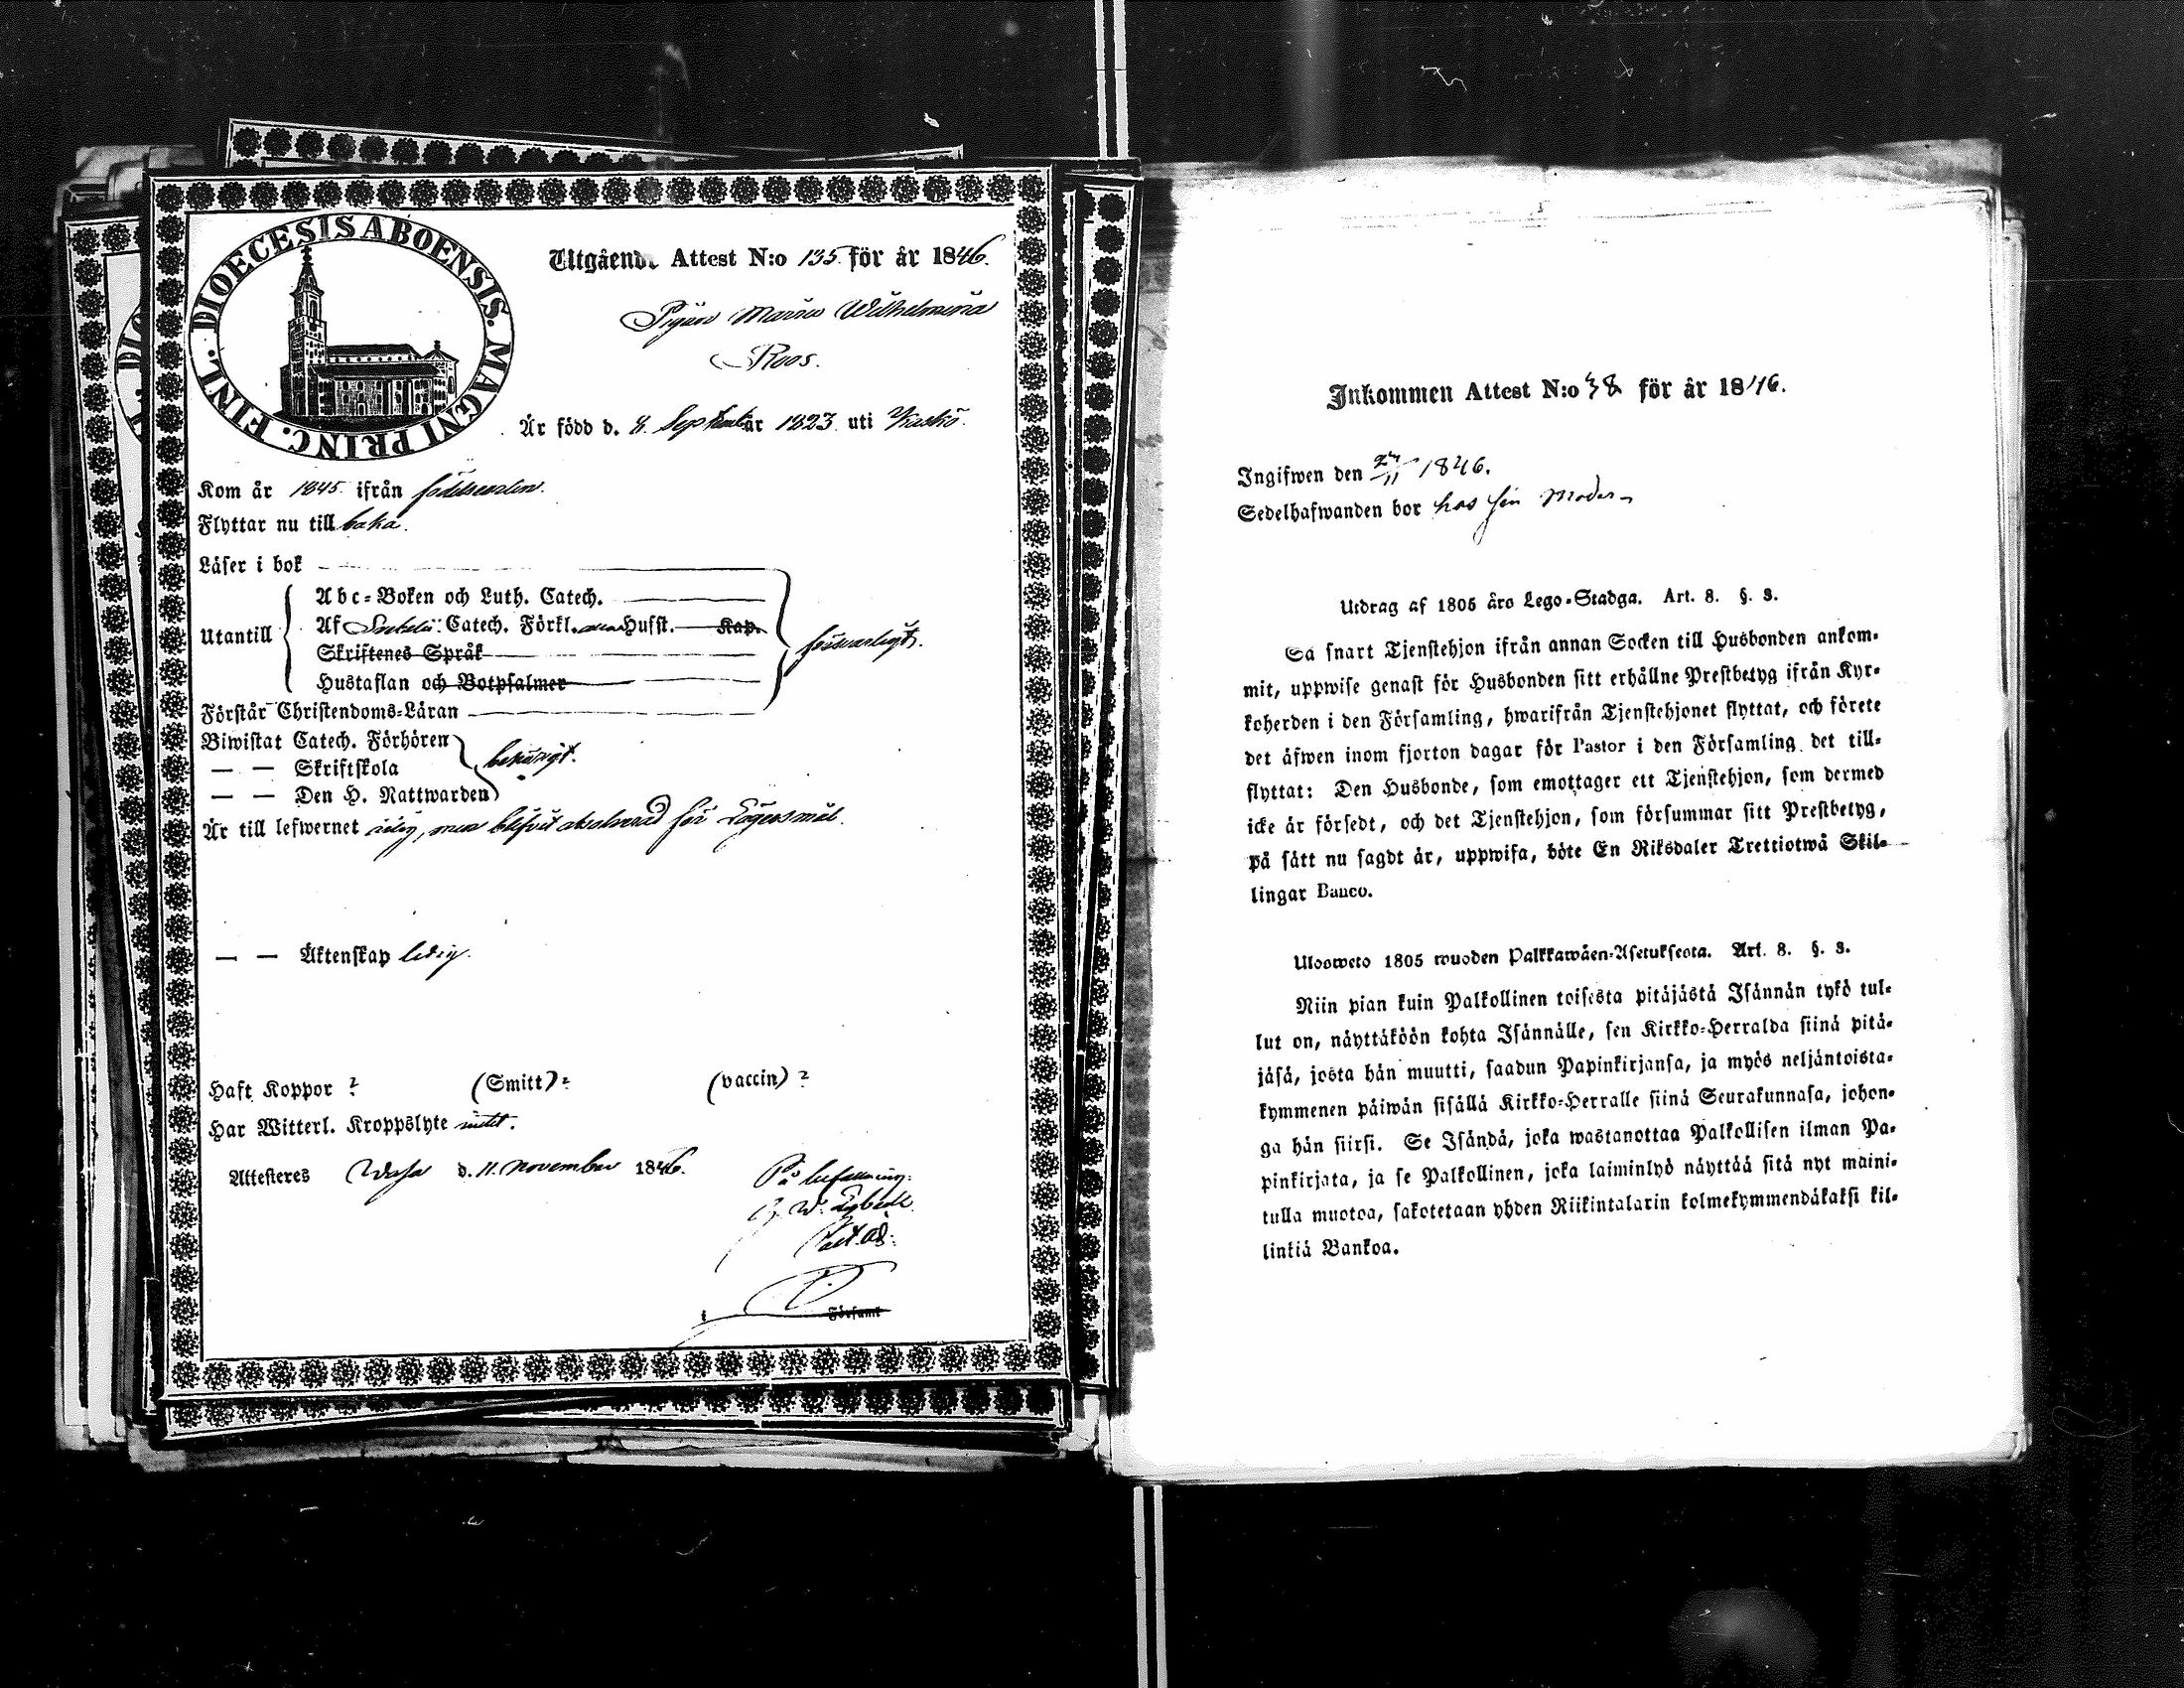 DIOECESIS ABOENSIS. MAGNI PRINC. FINL.
Utgående Attest N:o 135 för år 1846.
Pigan Maria Wilhelmina
Roos.
Är född d. 8. September år 1823 uti Kaskö.
Kom år 1845 ifrån födelseorten.
Flyttar nu till baka.
Läser i bok
Utantill
Abc-Boken och Luth. Catech.
Af Catech. Förkl. Husst. Kap.
Skriftenes Språk
Hustaflan och Botpsalmer
försvarligt.
Förstår Christendoms-Läran
Biwistat Catech. Förhören
— — Skriftskola
— — Den H. Nattwarden
behörigt.
Är till lefwernet men blifvit absolverad för Lägersmål.
— — Äktenskap ledig.
Haft Koppor ? (Smitt) ? (vaccin) ?
Har Witterl. Kroppslyte intet.
Attesteres Wasa d. 11. November 1846.
På befallning:
Past. Adj.
Församl
Inkommen Attest N:o 38 för år 1846.
Ingifwen den 24/11 1846.
Sedelhafwanden bor hos sin Moder
Utdrag af 1805 års Lego-Stadga. Art. 8. §. 3.
Så snart Tjenstehjon ifrån annan Socken till Husbonden ankom-
mit, uppwise genast för Husbonden sitt erhållne Prestbetyg ifrån Kyr-
koherden i den Församling, hwarifrån Tjenstehjonet flyttat, och förete
det äfwen inom fjorton dagar för Pastor i den Församling det till-
flyttat: Den Husbonde, som emottager ett Tjenstehjon, som dermed
icke är försedt, och det Tjenstehjon, som försummar sitt Prestbetyg,
på sätt nu sagdt är, uppwisa, böte En Riksdaler Trettiotwå Skil-
lingar Banco.
Ulosweto 1805 wuoden Palkkawäen-Asetuksesta. Art. 8. §. 3.
Niin pian kuin Palkollinen toisesta pitäjästä Isännän tykö tul-
lut on, näyttäköön kohta Isännälle, sen Kirkko-Herralda siinä pitä-
jäsä, josta hän muutti, saadun Papinkirjansa, ja myös neljäntoista-
kymmenen päiwän sisällä Kirkko-Herralle siinä Seurakunnasa, johon-
ga hän siirsi. Se Isändä, joka wastanottaa Palkollisen ilman Pa-
pinkirjata, ja se Palkollinen, joka laiminlyö näyttää sitä nyt maini-
tulla muotoa, sakotetaan yhden Riikintalarin kolmekymmendäkaksi kil-
linkiä Bankoa.